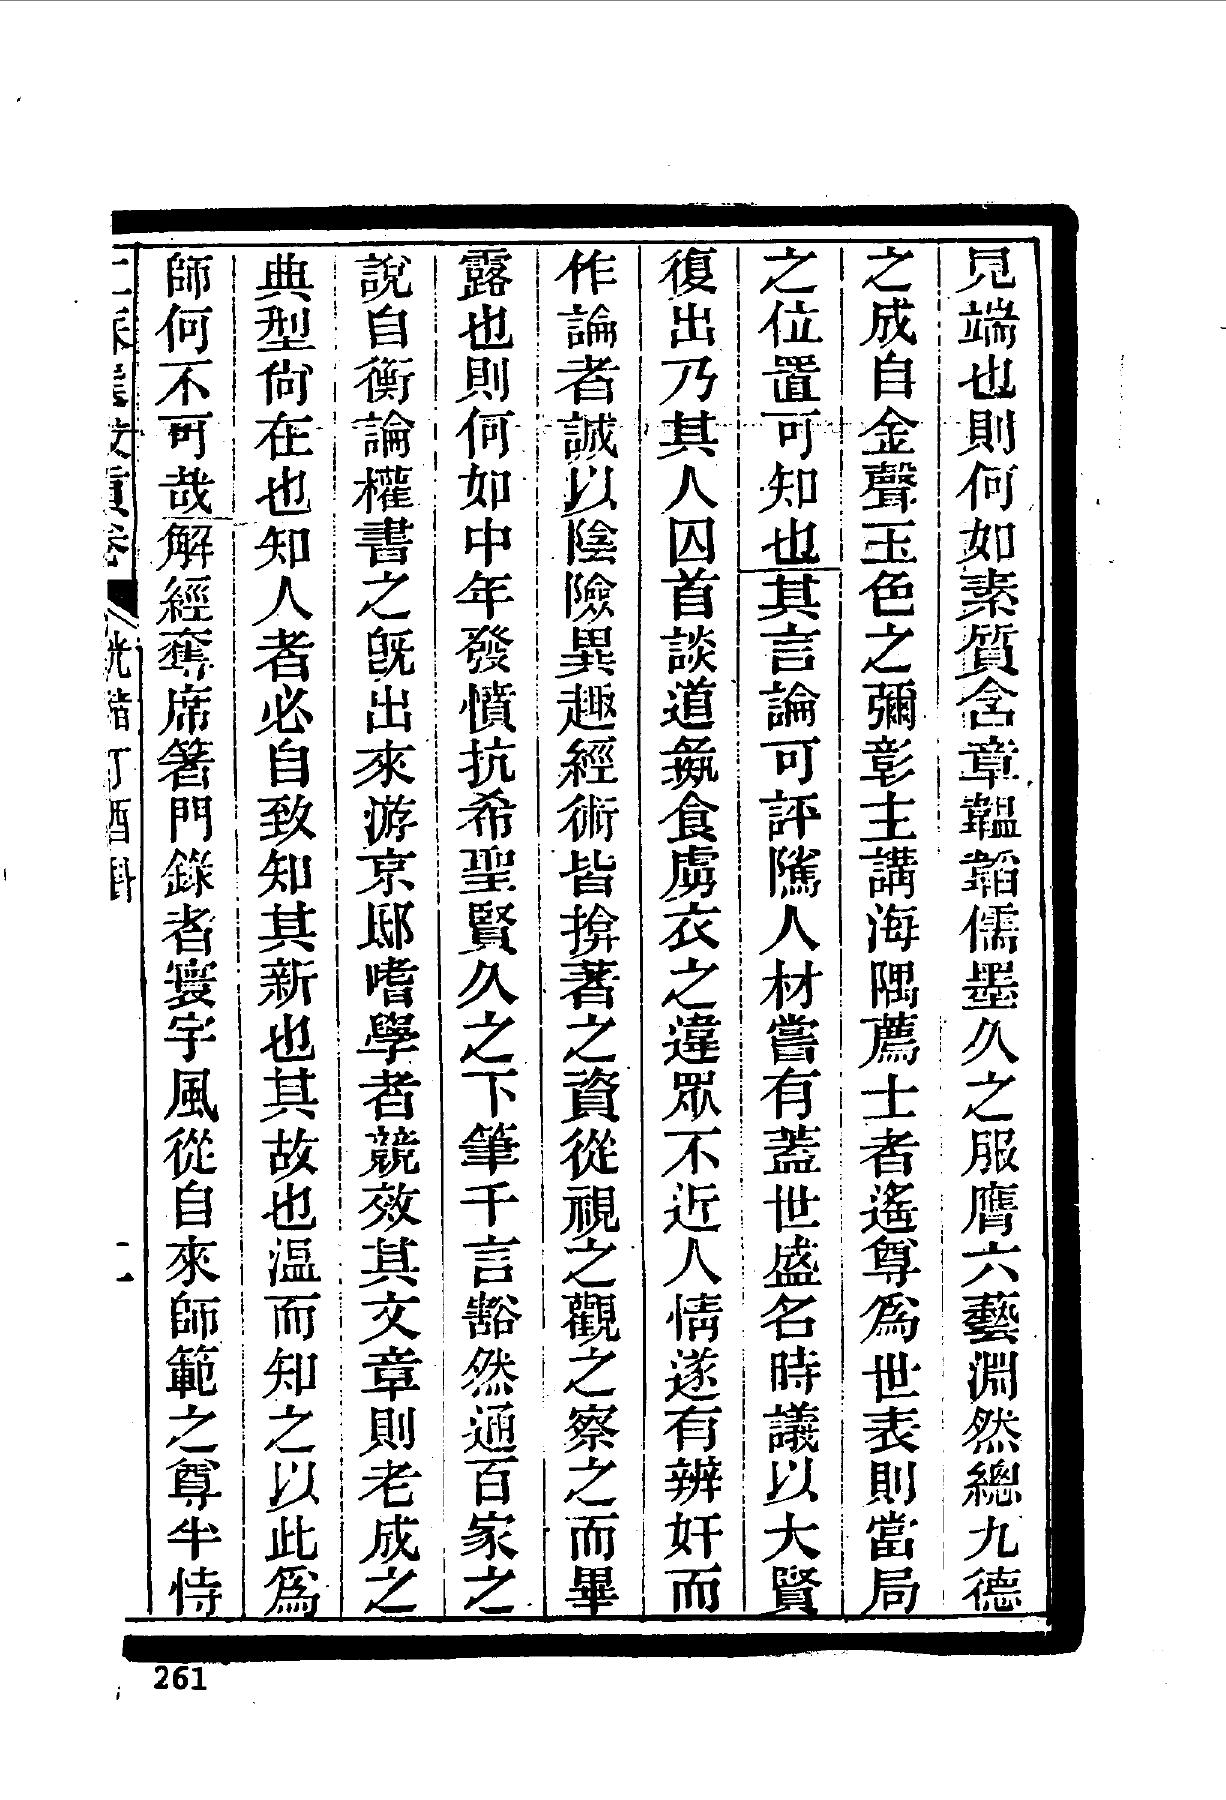 見端也則何如素質含章韞韜儒墨久之服膺六藝淵然總九德
之成自金聲玉色之彌彰主講海隅薦士者遙尊爲世表則當局
之位置可知也其言論可評騭人材嘗有蓋世盛名時議以大賢
復出乃其人囚首談道彘食虜衣之違眾不近人情遂有辨奸而
作論者誠以陰險異趣經術皆揜著之資從視之觀之察之而畢
露也則何如中年發憤抗希聖賢久之下筆千言豁然通百家之
說自衡論權書之既出來游京邸嗜學者競效其文章則老成之
典型尙在也知人者必自致知其新也其故也溫而知之以此爲
師何不可哉解經奪席箸門錄者寰宇風從自來師範之尊半恃
光緒丁酉科
261